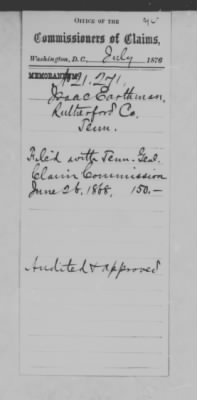 OFFICE OF THE
Commissioners of Claims,
Washington, D. C., July 1876
MEMORANDUM
121.271.
Isaac Earthman,
Rutherford Co.
Tenn.
Filed with Tenn. Genl.
Claim Commission
June 26, 1868, 150.—
Audited & approved